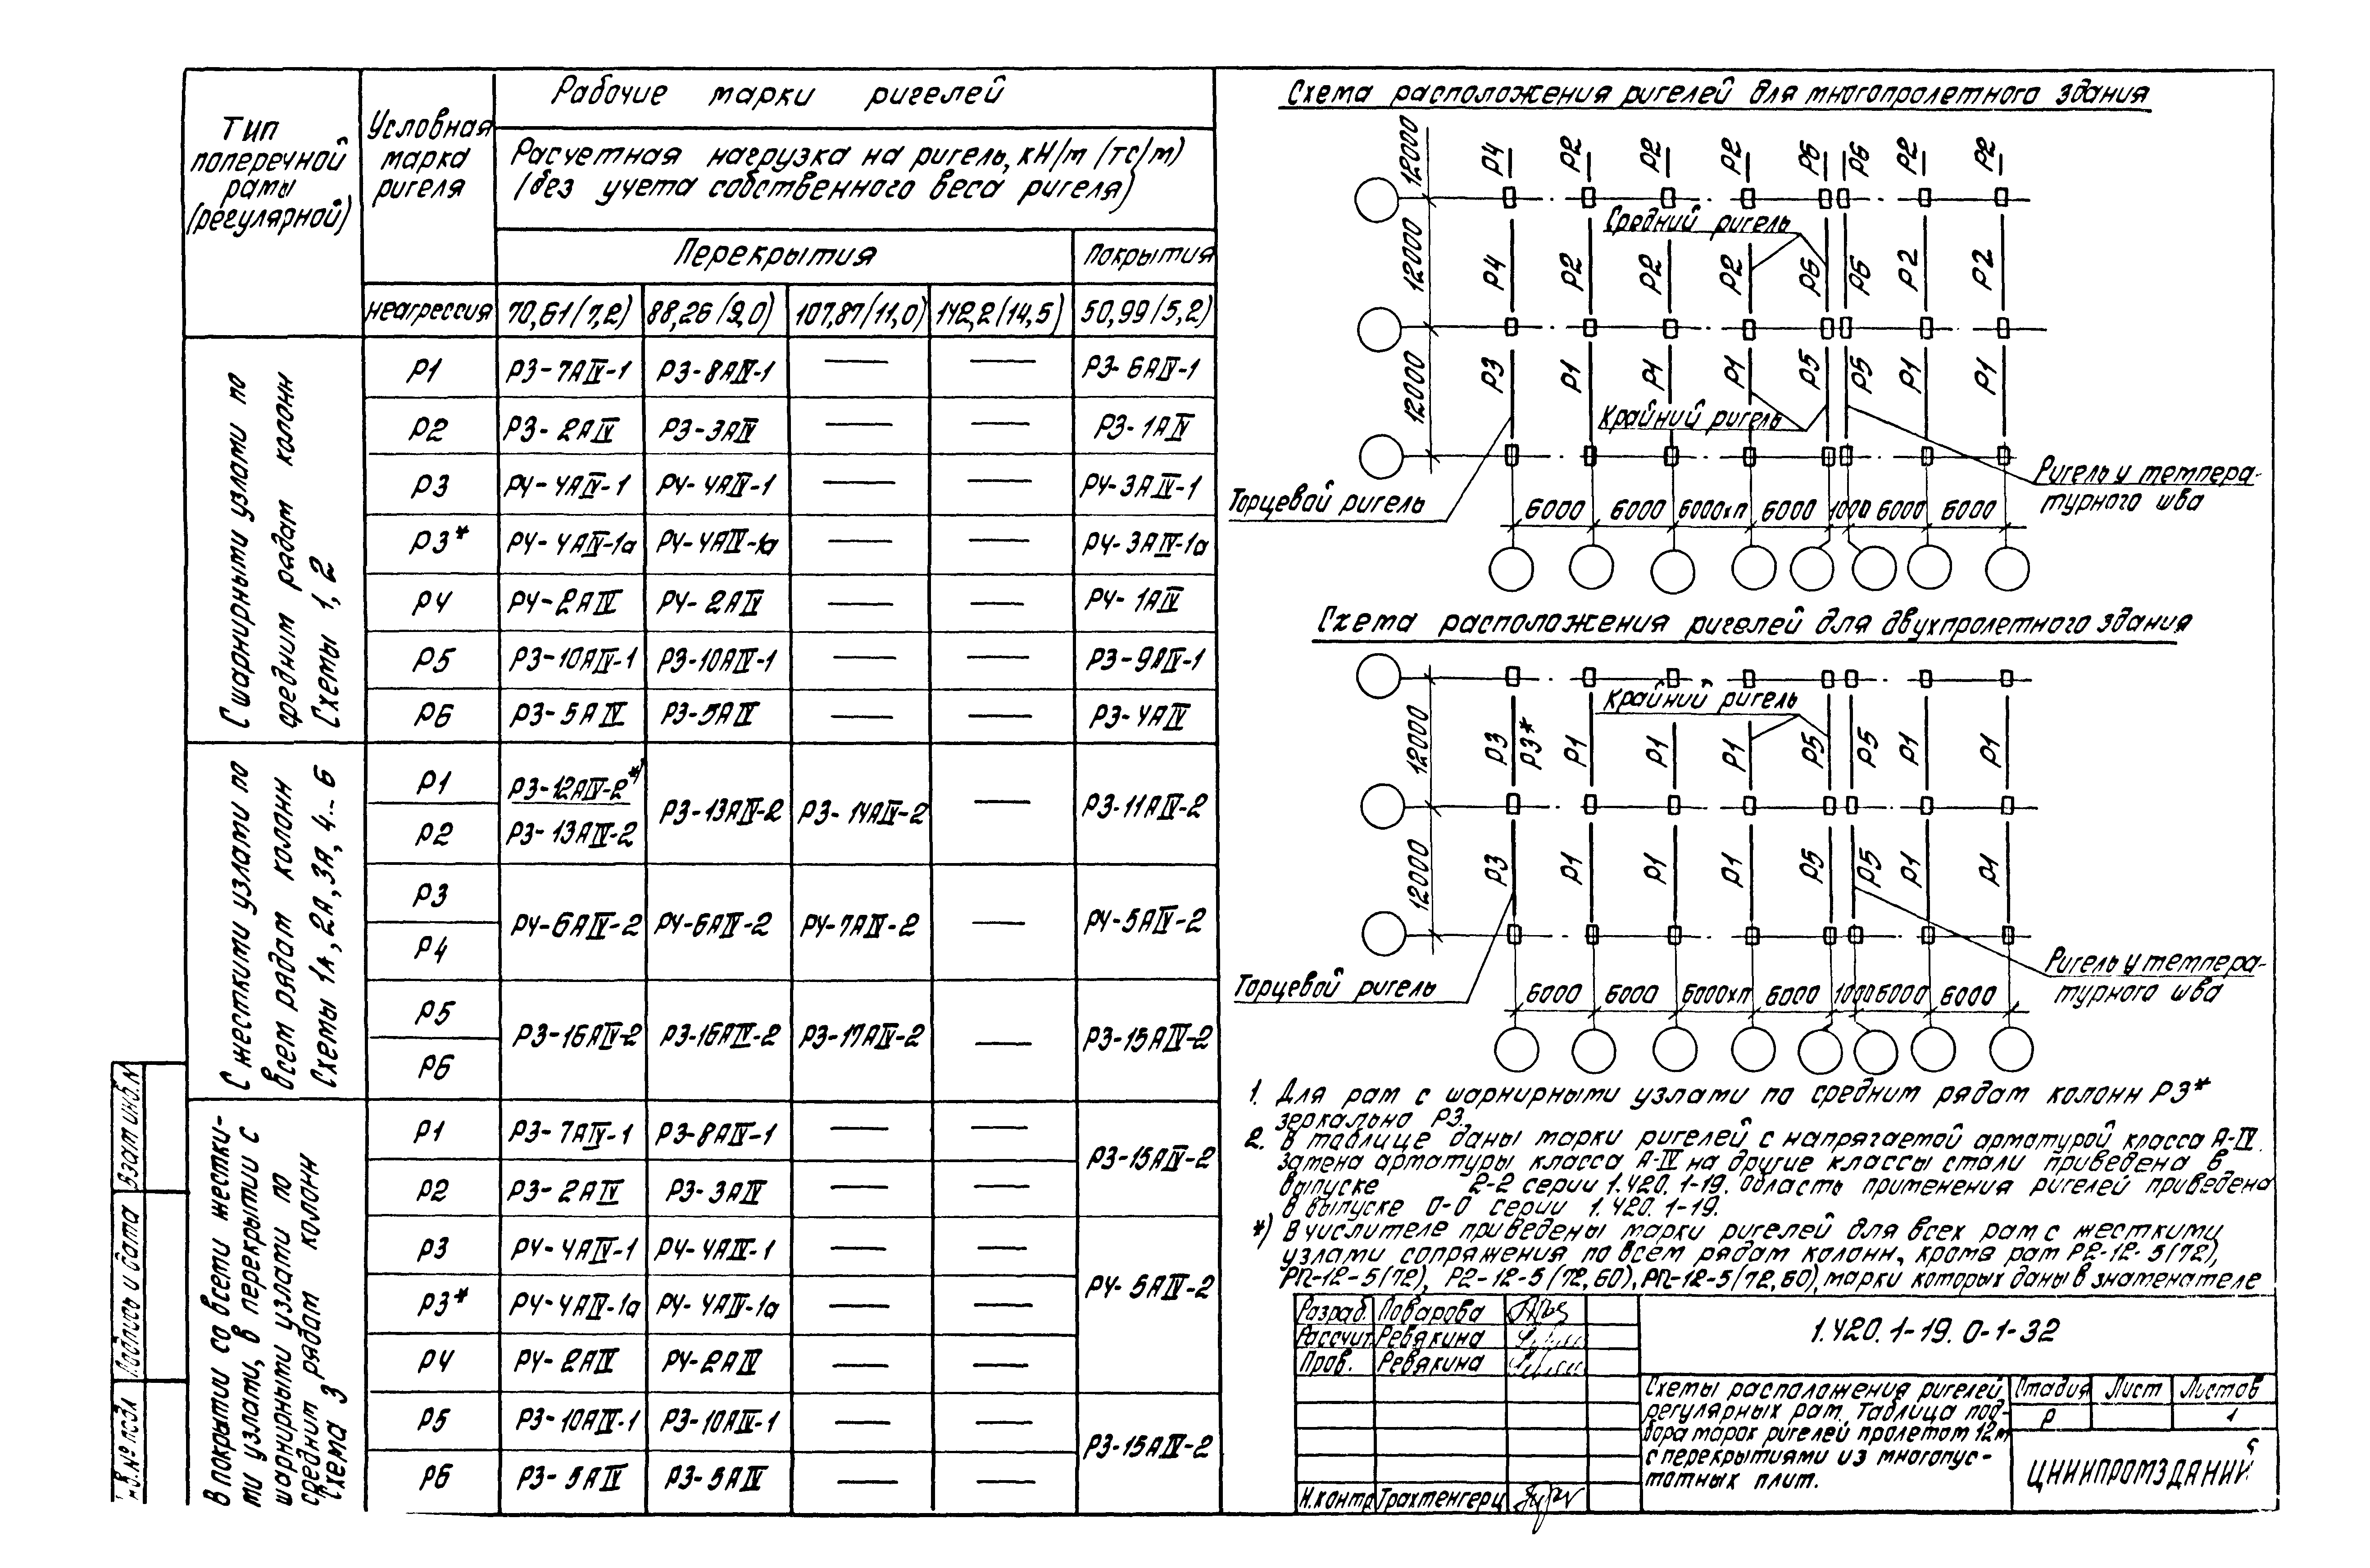 Тип
поперечной
рамы
(регулярной)
Условная
марка
ригеля
Рабочие марки ригелей
Расчетная нагрузка на ригель, кН/м (тс/м)
(без учета собственного веса ригеля)
Перекрытия Покрытия
неагрессия 70,61(7,2) 88,26(9,0) 107,87(11,0) 142,2(14,5) 50,99(5,2)
С шарнирными узлами по
средним рядам колонн
Схемы 1, 2
Р1 Р3-7АIV-1 Р3-8АIV-1 — — Р3-6АIV-1
Р2 Р3-2АIV Р3-3АIV — — Р3-1АIV
Р3 Р4-4АIV-1 Р4-4АIV-1 — — Р4-3АIV-1
Р3* Р4-4АIV-1а Р4-4АIV-1а — — Р4-3АIV-1а
Р4 Р4-2АIV Р4-2АIV — — Р4-1АIV
Р5 Р3-10АIV-1 Р3-10АIV-1 — — Р3-9АIV-1
Р6 Р3-5АIV Р3-5АIV — — Р3-4АIV
С жесткими узлами по
всем рядам колонн
Схемы 1А, 2А, 3А, 4..6
Р1 Р3-12АIV-2*)
Р3-13АIV-2 Р3-14АIV-2 — Р3-11АIV-2
Р2 Р3-13АIV-2
Р3
Р4-6АIV-2 Р4-6АIV-2 Р4-7АIV-2 — Р4-5АIV-2
Р4
Р5
Р3-16АIV-2 Р3-16АIV-2 Р3-17АIV-2 — Р3-15АIV-2
Р6
В покрытии со всеми жестки-
ми узлами, в перекрытии с
шарнирными узлами по
средним рядам колонн
Схема 3
Р1 Р3-7АIV-1 Р3-8АIV-1 — —
Р3-15АIV-2
Р2 Р3-2АIV Р3-3АIV — —
Р3 Р4-4АIV-1 Р4-4АIV-1 — —
Р3* Р4-4АIV-1а Р4-4АIV-1а — — Р4-5АIV-2
Р4 Р4-2АIV Р4-2АIV — —
Р5 Р3-10АIV-1 Р3-10АIV-1 — —
Р3-15АIV-2
Р6 Р3-5АIV Р3-5АIV — —
Схема расположения ригелей для многопролетного здания
12000 Р4 Р2 Р2 Р2 Р6 Р6 Р2 Р2
Средний ригель
12000 Р4 Р2 Р2 Р2 Р6 Р6 Р2 Р2
12000 Р3 Р1 Р1 Р1 Р5 Р5 Р1 Р1
Крайний ригель
Ригель у темпера-
турного шва
Торцевой ригель
6000 6000 6000хп 6000 1000 6000 6000
Схема расположения ригелей для двухпролетного здания
Крайний ригель
12000 Р3 Р3* Р1 Р1 Р1 Р5 Р5 Р1 Р1
12000 Р3 Р1 Р1 Р1 Р5 Р5 Р1 Р1
Ригель у темпера-
турного шва
Торцевой ригель
6000 6000 6000хп 6000 1000 6000 6000
1. Для рам с шарнирными узлами по средним рядам колонн Р3*
зеркально Р3.
2. В таблице даны марки ригелей с напрягаемой арматурой класса А-IV.
Замена арматуры класса А-IV на другие классы стали приведена в
выпуске 2-2 серии 1.420.1-19. Область применения ригелей приведена
в выпуске 0-0 серии 1.420.1-19.
*) В числителе приведены марки ригелей для всех рам с жесткими
узлами сопряжения по всем рядам колонн, кроме рам Р2-12-5(72),
РП-12-5(72), Р2-12-5(72,60), РП-12-5(72,60), марки которых даны в знаменателе
Разраб. Поварова
Рассчит. Ревякина
Пров. Ревякина
Н.контр Трахтенгерц
1.420.1-19.0-1-32
Схемы расположения ригелей
регулярных рам. Таблица под-
бора марок ригелей пролетом 12м
с перекрытиями из многопус-
тотных плит.
Стадия Лист Листов
Р 1
ЦНИИПРОМЗДАНИЙ
9
Взам инв.N
Подпись и дата
инв.№ подл